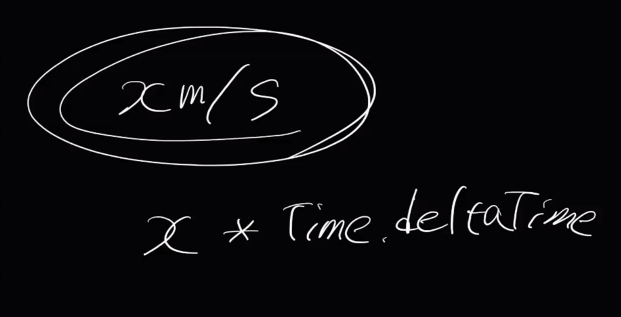 x m/s
x * Time.deltaTime